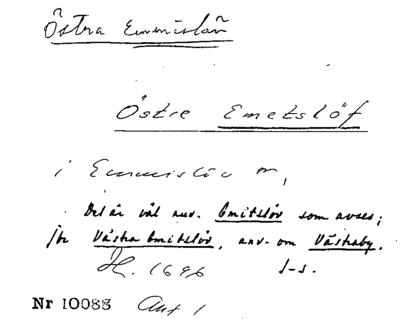 Östra Emmislöv
Östre Emetslöf
i Emmislöv sn,
Det är väl anv. Emitslöv som avses;
jbr Västra Emitslöv, anv. om Västraby.
H. 1696 J-s.
Nr 10088 Ant 1